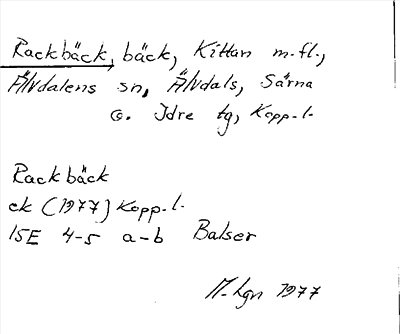 Rackbäck, bäck, Kittan m.fl.,
Älvdalens sn, Älvdals, Särna
o. Idre tg, Kopp.l.
Rackbäck
ek (1977) Kopp.l.
15E 4-5 a-b Balser
M. Lgn 1977